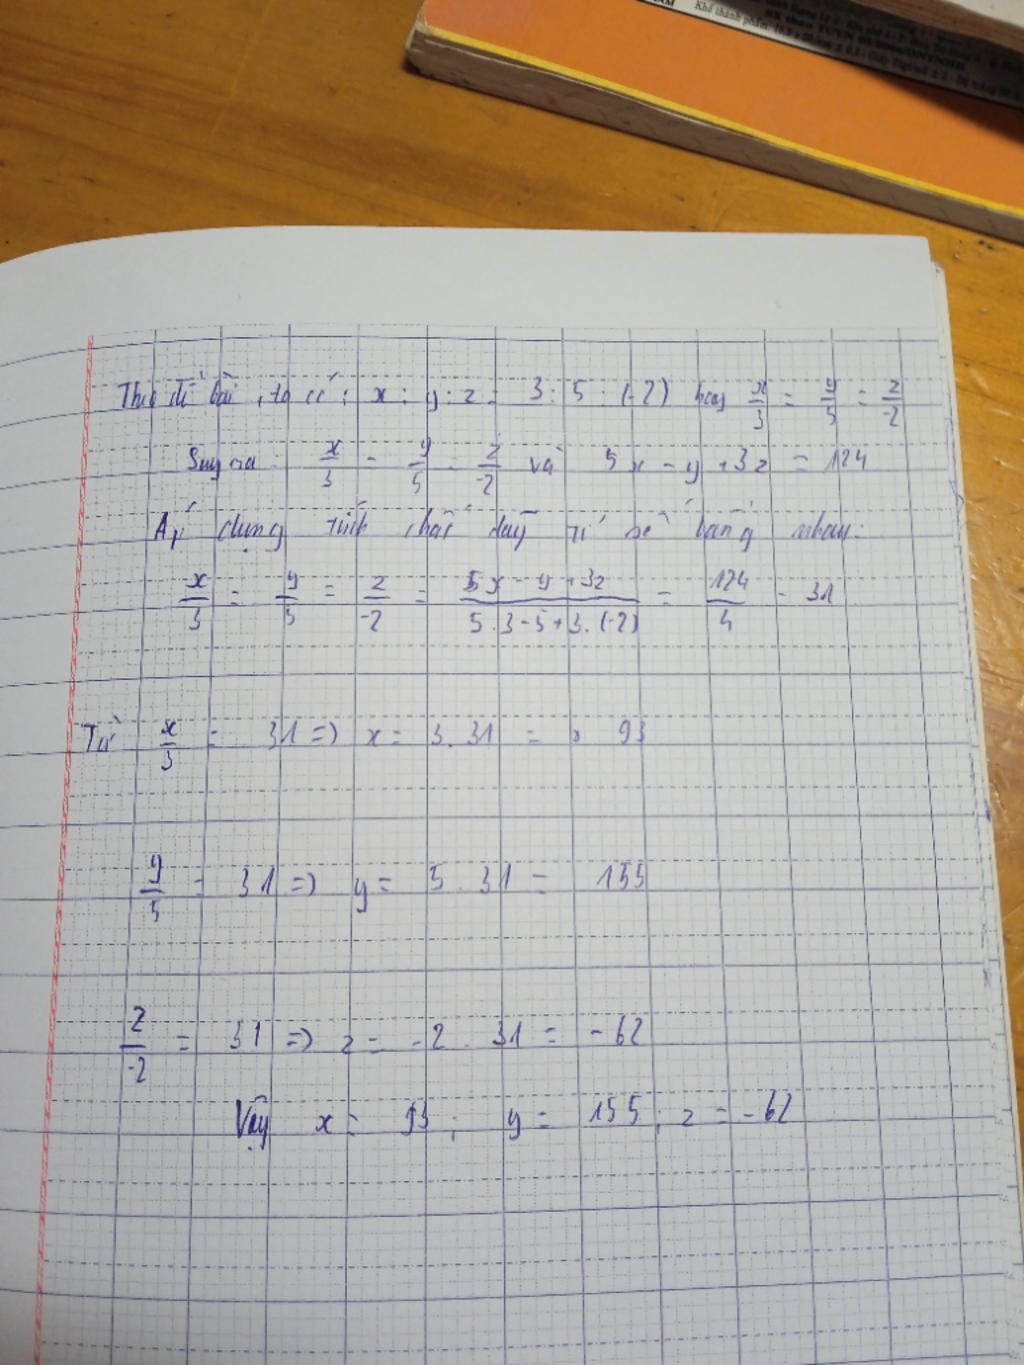 Khổ thành phẩm:
Theo đề bài, ta có: x : y : z = 3 : 5 : (-2) hay x/3 = y/5 = z/-2
Suy ra: x/3 = y/5 = z/-2 và 5x - y + 3z = 124
Áp dụng tính chất dãy tỉ số bằng nhau:
x/3 = y/5 = z/-2 = (5x - y + 3z)/(5.3 - 5 + 3.(-2)) = 124/4 = 31
Từ x/3 = 31 => x = 3.31 = 93
y/5 = 31 => y = 5.31 = 155
z/-2 = 31 => z = -2.31 = -62
Vậy x = 93; y = 155; z = -62